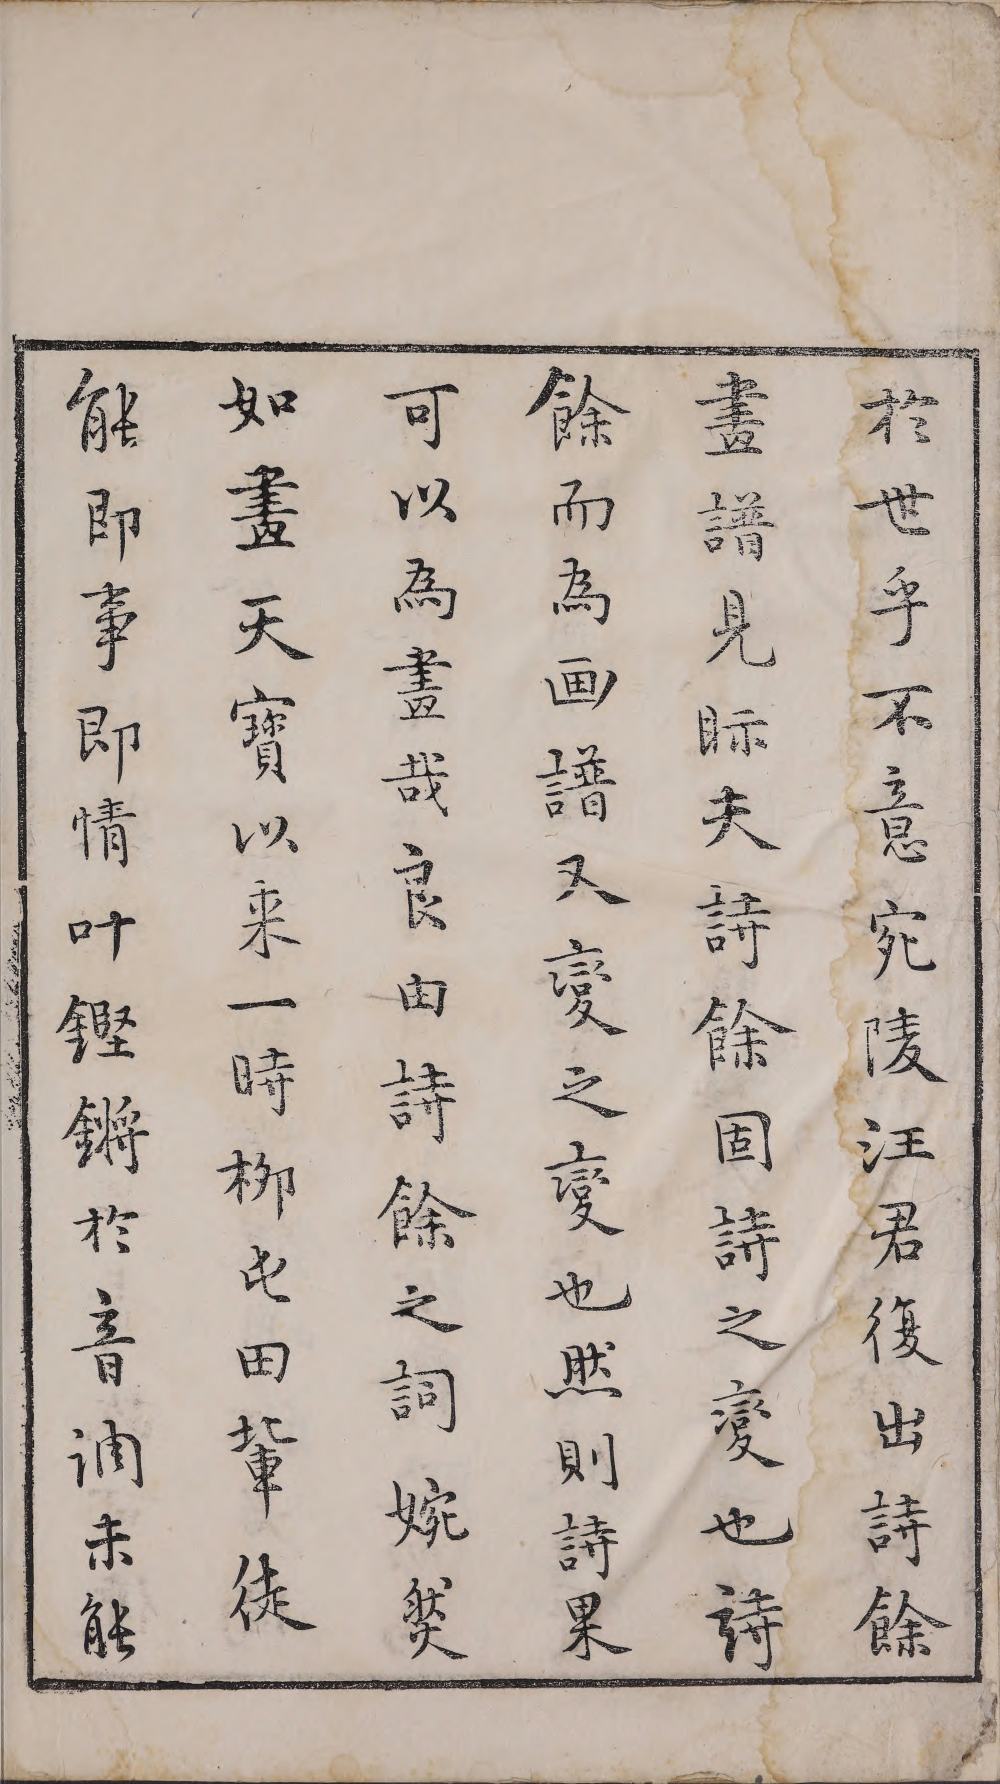 於世乎不意宛陵汪君復出詩餘
畫譜見眎夫詩餘固詩之變也詩
餘而為画譜又變之變也然則詩果
可以為畫哉良由詩餘之詞婉㷼
如畫天寶以来一時柳屯田輩徒
能即事即情叶鏗鏘於音調未能